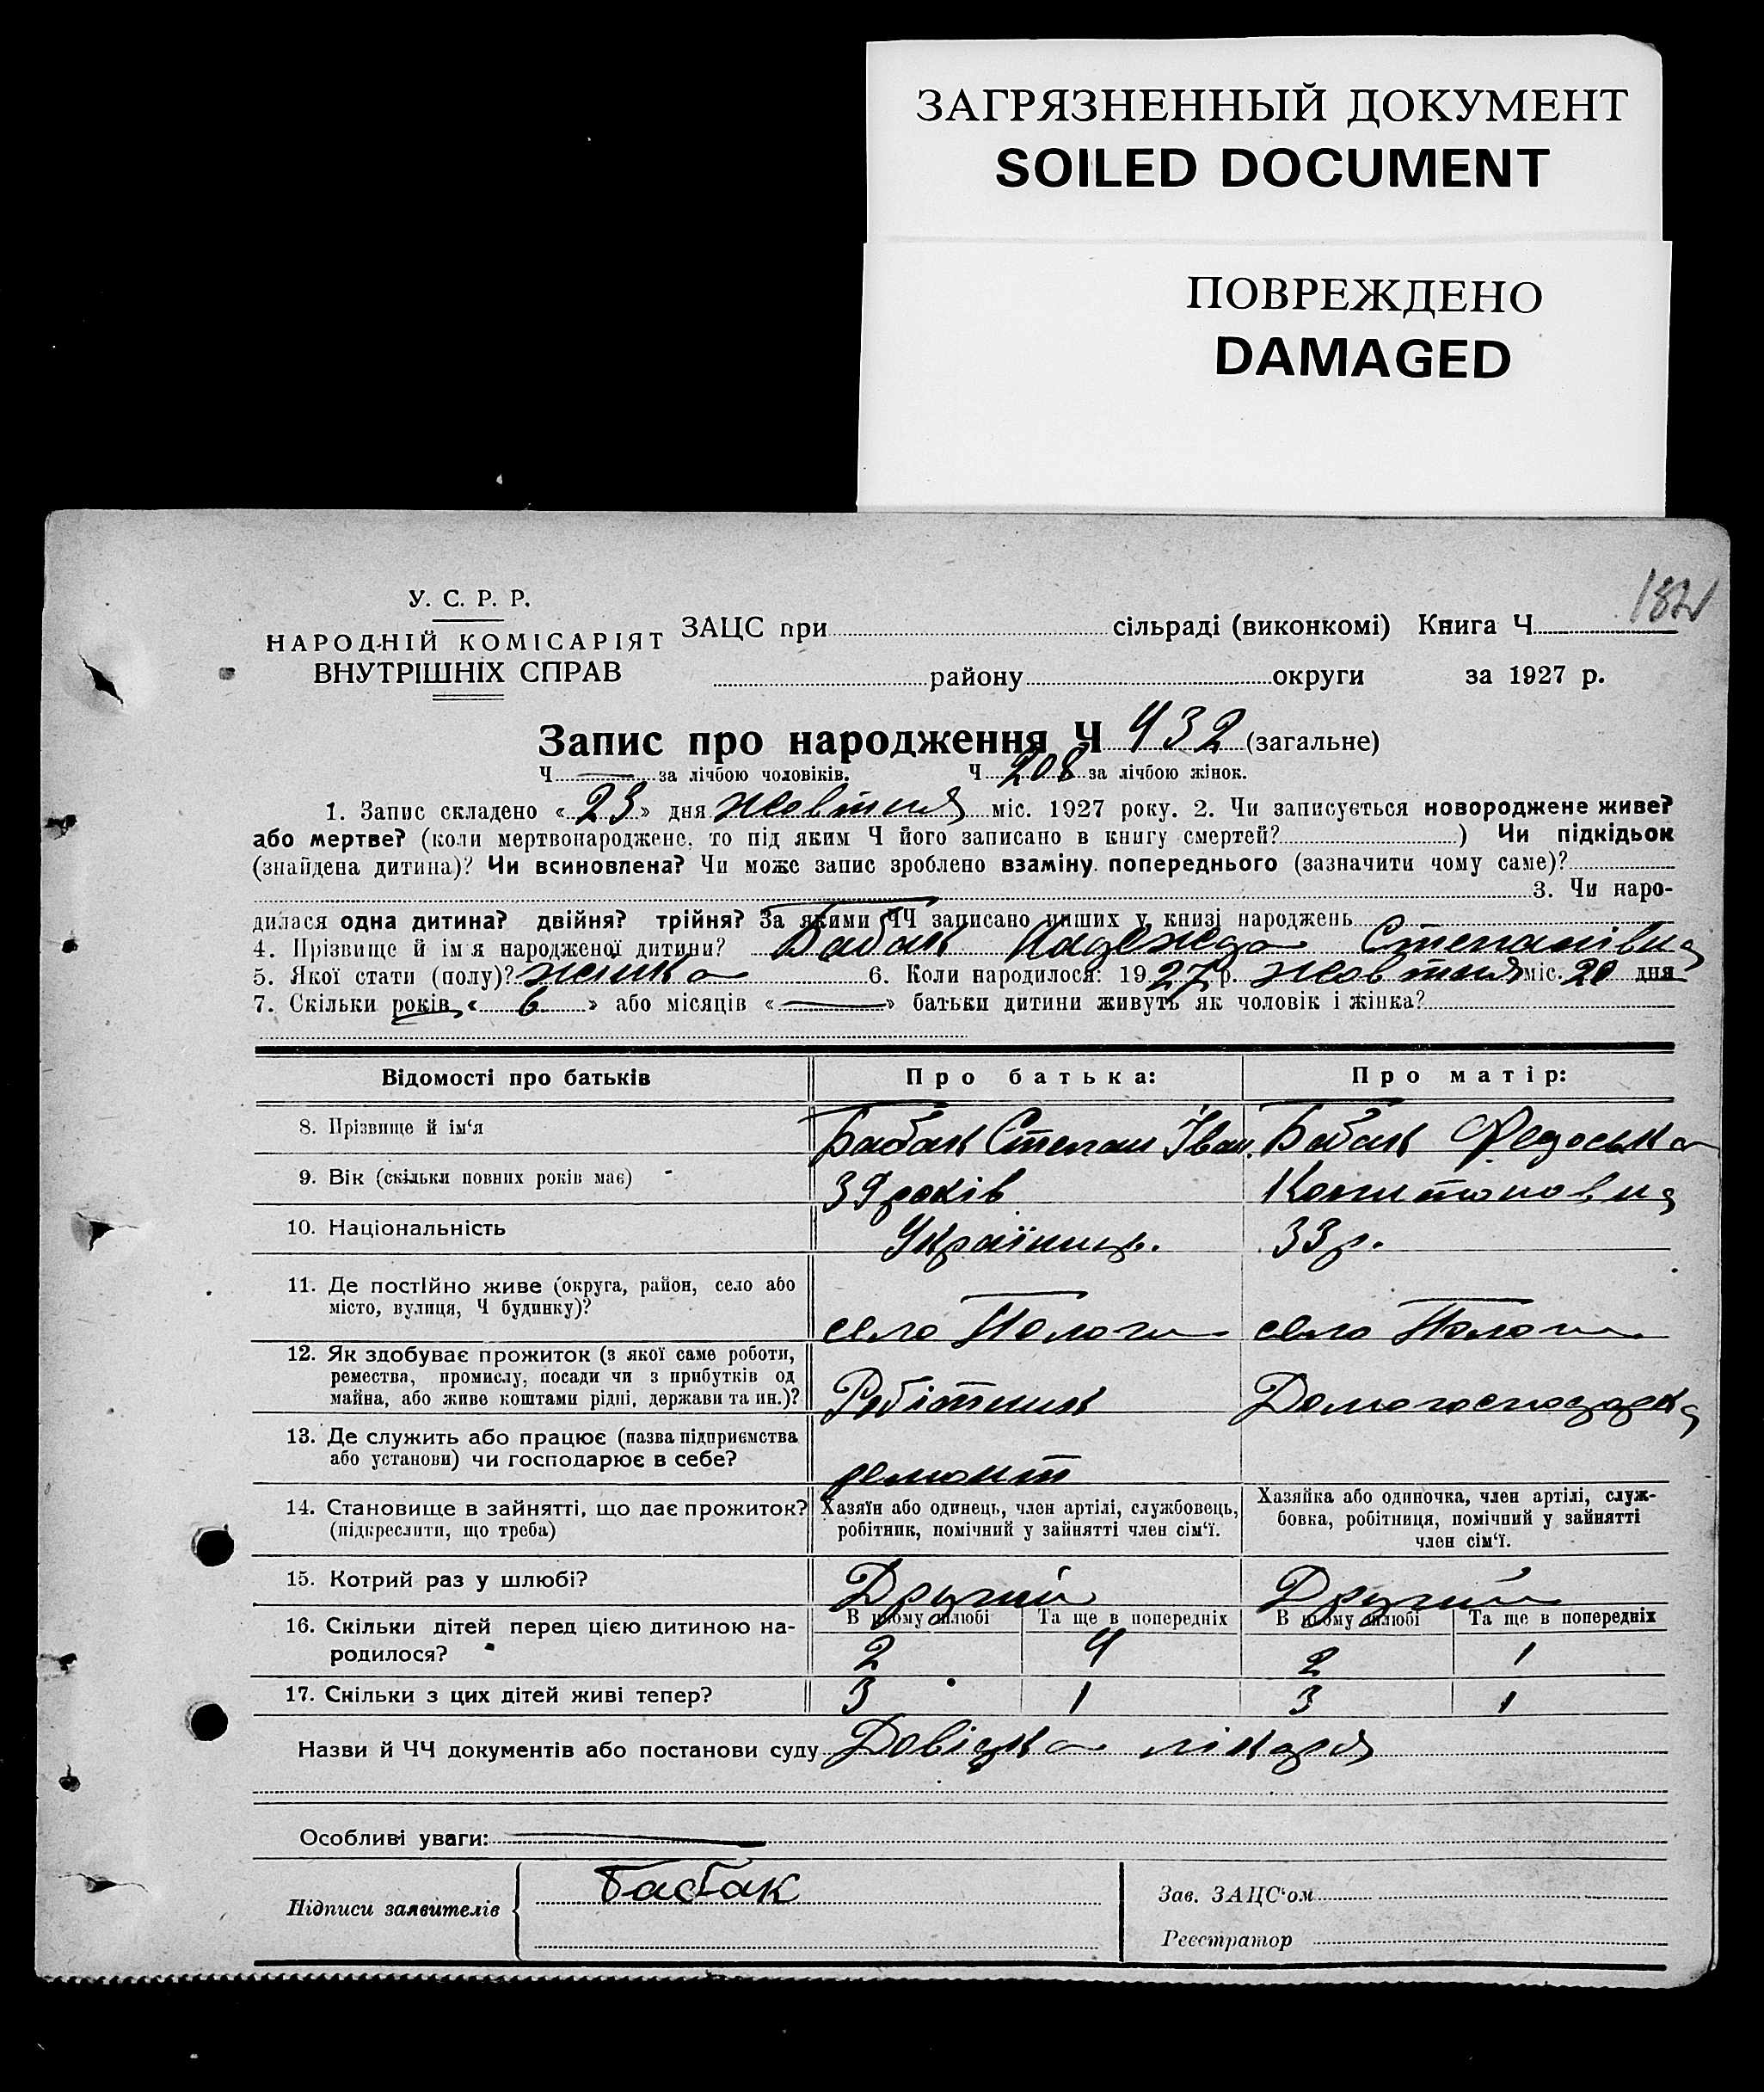 ЗАГРЯЗНЕННЫЙ ДОКУМЕНТ
SOILED DOCUMENT
ПОВРЕЖДЕНО
DAMAGED
182
У. С. Р. Р.
НАРОДНІЙ КОМІСАРІЯТ
ВНУТРІШНІХ СПРАВ
ЗАЦС при сільраді (виконкомі) Книга Ч
району округи за 1927 р.
Запис про народження Ч 432 (загальне)
Ч — за лічбою чоловіків. Ч 208 за лічбою жінок.
1. Запис складено «23» дня жовтня міс. 1927 року. 2. Чи записується новороджене живе?
або мертве? (коли мертвонароджене, то під яким Ч його записано в книгу смертей? ) Чи підкідьок
(знайдена дитина)? Чи всиновлена? Чи може запис зроблено взаміну попереднього (зазначити чому саме)?
3. Чи наро-
дилася одна дитина? двійня? трійня? За якими ЧЧ записано инших у книзі народжень
4. Прізвище й ім'я народженої дитини? Бабак Надежда Степанівна
5. Якої стати (полу)? жінка 6. Коли народилося: 1927 р. жовтня міс. 20 дня
7. Скільки років « 6 » або місяців « — » батьки дитини живуть як чоловік і жінка?
Відомості про батьків Про батька: Про матір:
8. Прізвище й ім'я Бабак Степан Іван. Бабак Федоська
9. Вік (скільки повних років має) 39 років Капитоновна
10. Національність Українець. 33 р.
11. Де постійно живе (округа, район, село або
місто, вулиця, Ч будинку)? село Пологи село Пологи
12. Як здобуває прожиток (з якої саме роботи,
ремества, промислу, посади чи з прибутків од
майна, або живе коштами рідні, держави та ин.)? Робітник Домогосподарка
13. Де служить або працює (назва підприємства
або установи) чи господарює в себе? ремонт
14. Становище в зайнятті, що дає прожиток?
(підкреслити, що треба)
Хазяїн або одинець, член артілі, службовець,
робітник, помічний у зайнятті член сім'ї.
Хазяйка або одиночка, член артілі, служ-
бовка, робітниця, помічний у зайнятті
член сім'ї.
15. Котрий раз у шлюбі? Другий Другий
16. Скільки дітей перед цією дитиною на-
родилося?
В цьому шлюбі Та ще в попередніх В цьому шлюбі Та ще в попередніх
2 4 2 1
17. Скільки з цих дітей живі тепер? 3 1 3 1
Назви й ЧЧ документів або постанови суду Довідка лікаря
Особливі уваги: —
Підписи заявителів Бабак
Зав. ЗАЦС'ом
Реєстратор